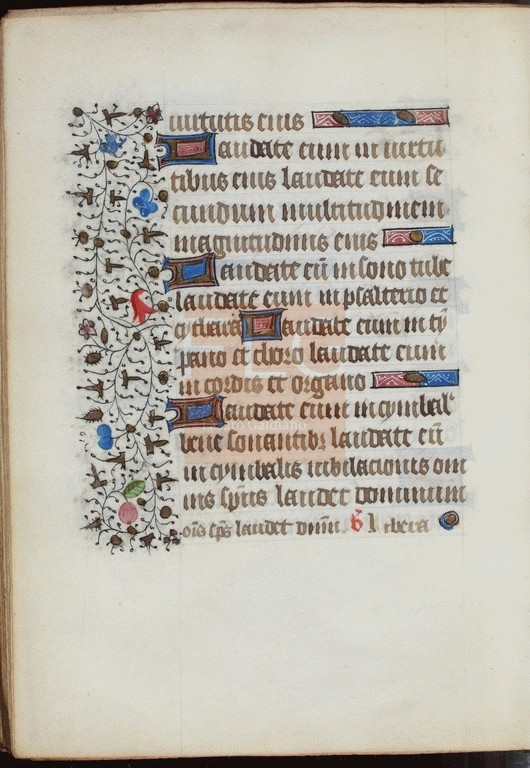 virtutis eius
Laudate eum in virtu
tibus eius laudate eum se
cundum multitudinem
magnitudinis eius
Laudate eū in sono tube
laudate eum in psalterio et
cythara Laudate eum in ty
pano et choro laudate eum
in cordis et organo
Laudate eum in cymbal'
bene sonantibz laudate eū
in cymbalis iubilacionis om
nis spūs laudet dominum
oīs sp̄s laudet dnm̄. Libera